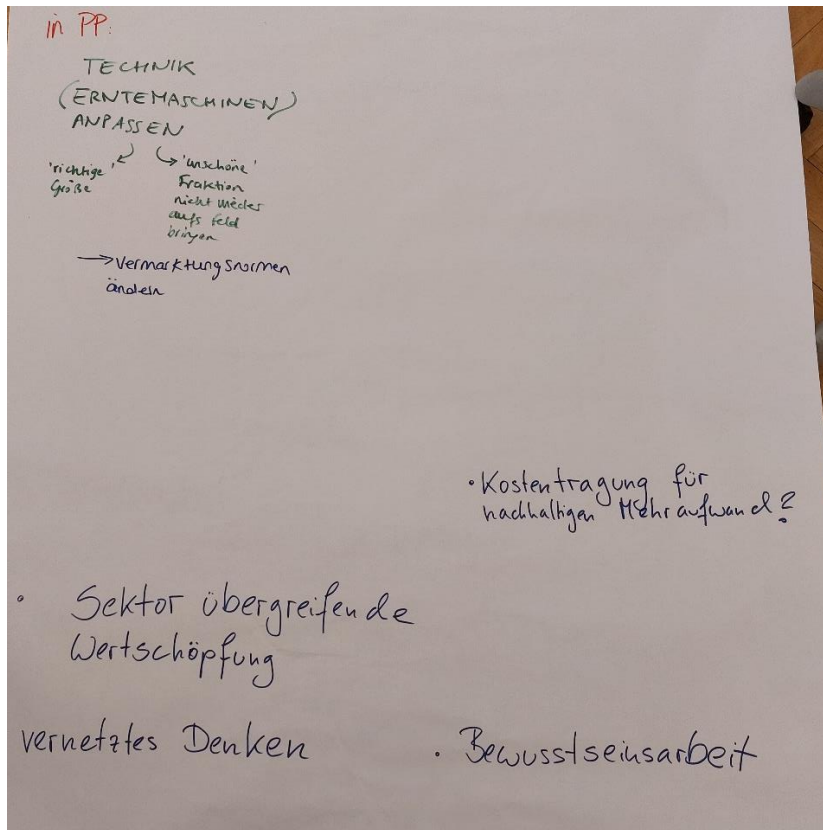 in PP:
TECHNIK
(ERNTEMASCHINEN)
ANPASSEN
'richtige'
Größe
'unschöne'
Fraktion
nicht wieder
aufs Feld
bringen
→ Vermarktungsnormen
ändern
• Kostentragung für
nachhaltigen Mehraufwand?
• Sektor übergreifende
Wertschöpfung
vernetztes Denken
• Bewusstseinsarbeit